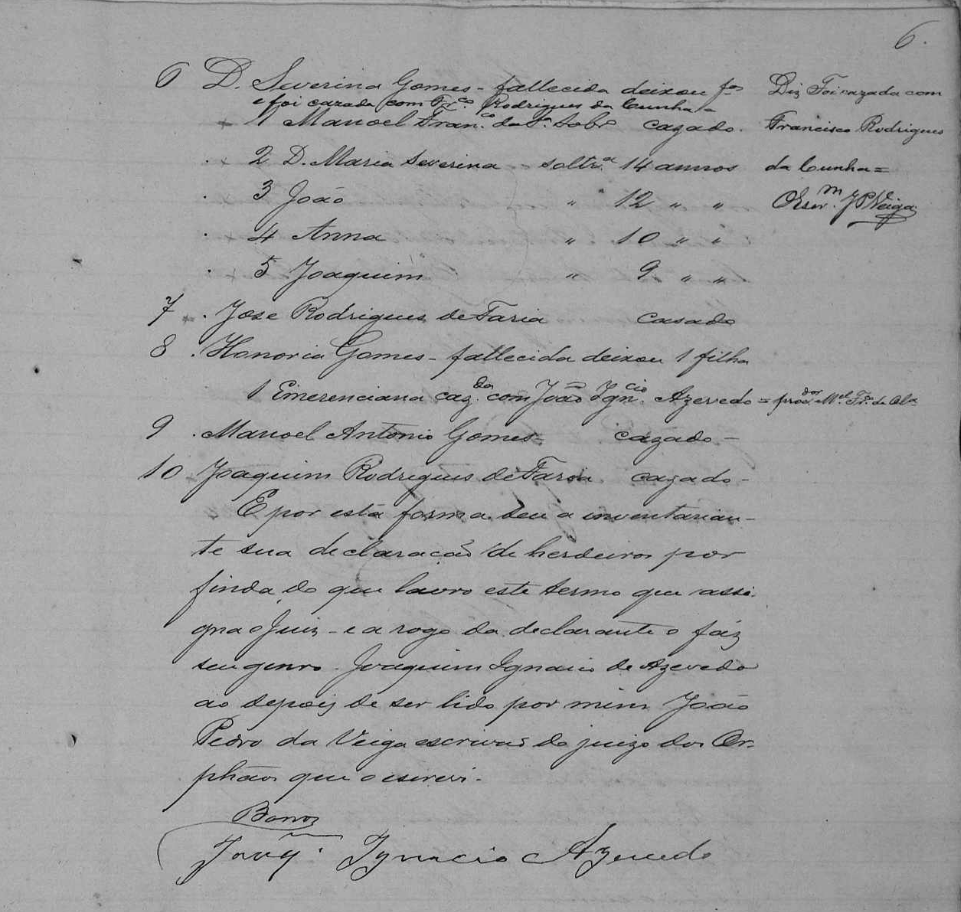 6.
6 D. Severina Gomes - fallecida deixou fos
e foi cazada com Fco Rodrigues da Cunha -
1 Manoel Franco da Sa Sobro cazado.
2 D. Maria Severina - soltra 14 annos
3 João " 12 " "
4 Anna " 10 " "
5 Joaquim " 9 " "
Diz Foi cazada com
Francisco Rodrigues
da Cunha =
O Esermm J P Veiga
7 José Rodrigues de Faria casado
8 Honoria Gomes - fallecida deixou 1 filha
1 Emerenciana cazda com João Igncio Azevedo = prodor Mel Fco de
9 Manoel Antonio Gomes - cazado -
10 Joaquim Rodrigues de Faria cazado -
E por está forma deu a inventarian-
te sua declaração de herdeiros por
finda do que lavro este termo que assi-
gna o Juiz - e a rogo da declarante o fáz
seu genro Joaquim Ignacio de Azevedo
ao depois de ser lido por mim João
Pedro da Veiga escrivão do juizo dos Or-
phãos que o escrevi.
Barros
Joaqm Ignacio Azevedo